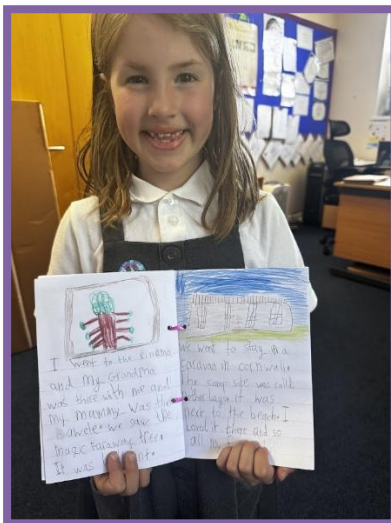 I went to the kinama
and my Grandma
was there with me and
my mummy was the
we saw the
magic Faraway tree.
It was
we went to stay in a
caravan in cornwall.
the camp site was calld
it was
near to the beach. I
loved it there and so
all